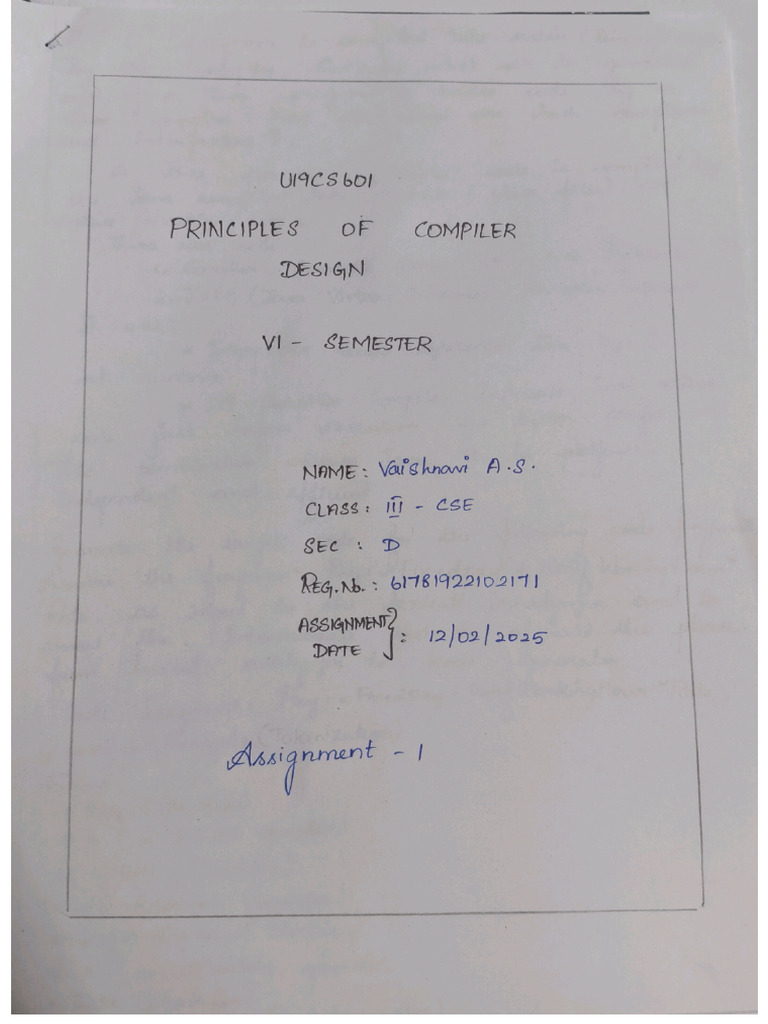 U19CS601
PRINCIPLES OF COMPILER
DESIGN
VI - SEMESTER
NAME: Vaishnavi A.S.
CLASS: III - CSE
SEC : D
REG.No.: 61781922102171
ASSIGNMENT
DATE } : 12/02/2025
Assignment - 1